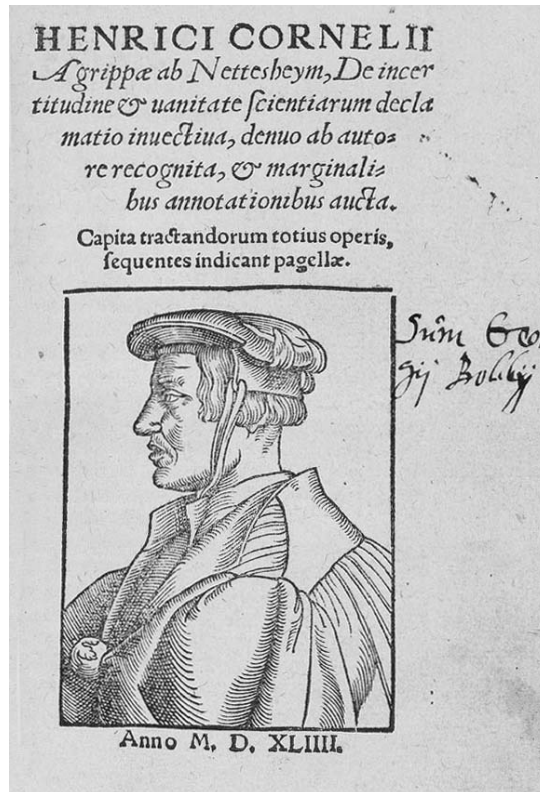 HENRICI CORNELII
Agrippæ ab Nettesheym, De incer
titudine & uanitate ſcientiarum decla
matio inuectiua, denuo ab auto⸗
re recognita, & marginali⸗
bus annotationibus aucta.
Capita tractandorum totius operis,
ſequentes indicant pagellæ.
Sum Geo
gij
Anno M. D. XLIIII.